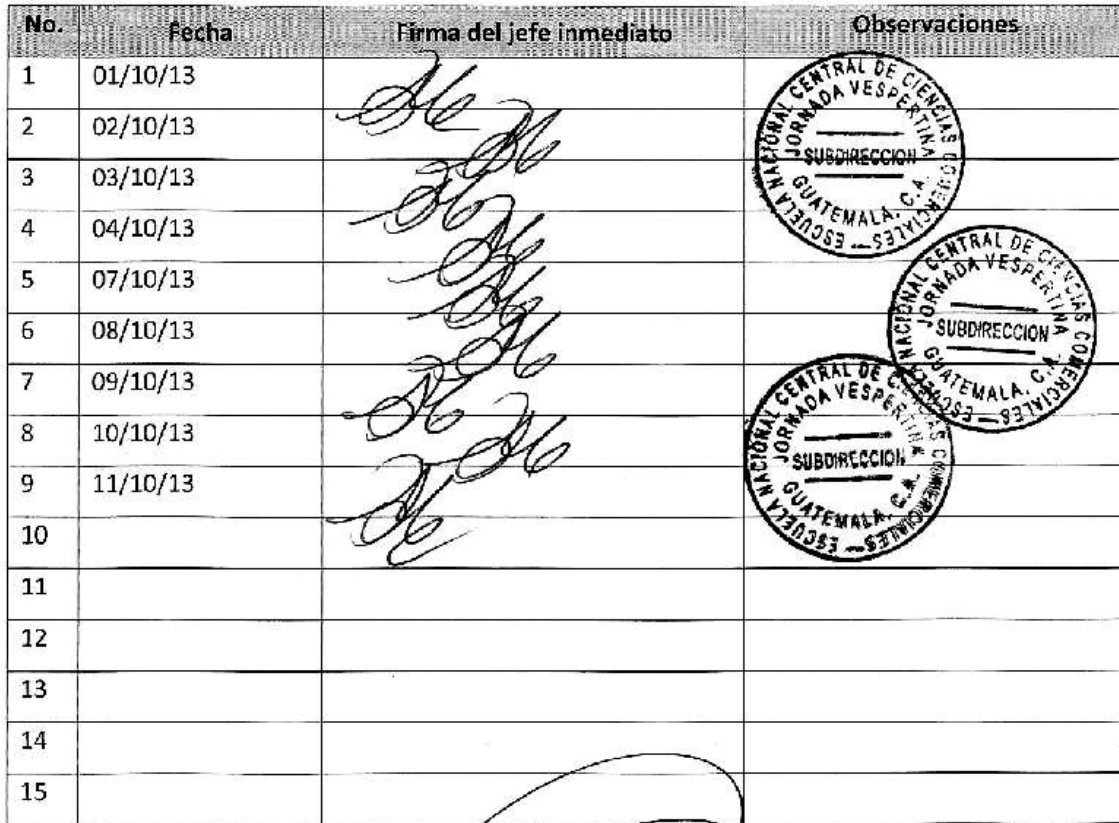 No. Fecha Firma del jefe inmediato Observaciones
1 01/10/13
2 02/10/13
3 03/10/13
4 04/10/13
5 07/10/13
6 08/10/13
7 09/10/13
8 10/10/13
9 11/10/13
10
11
12
13
14
15
ESCUELA NACIONAL CENTRAL DE CIENCIAS COMERCIALES
JORNADA VESPERTINA
SUBDIRECCION
GUATEMALA, C.A.
ESCUELA NACIONAL CENTRAL DE CIENCIAS COMERCIALES
JORNADA VESPERTINA
SUBDIRECCION
GUATEMALA, C.A.
ESCUELA NACIONAL CENTRAL DE CIENCIAS COMERCIALES
JORNADA VESPERTINA
SUBDIRECCION
GUATEMALA, C.A.